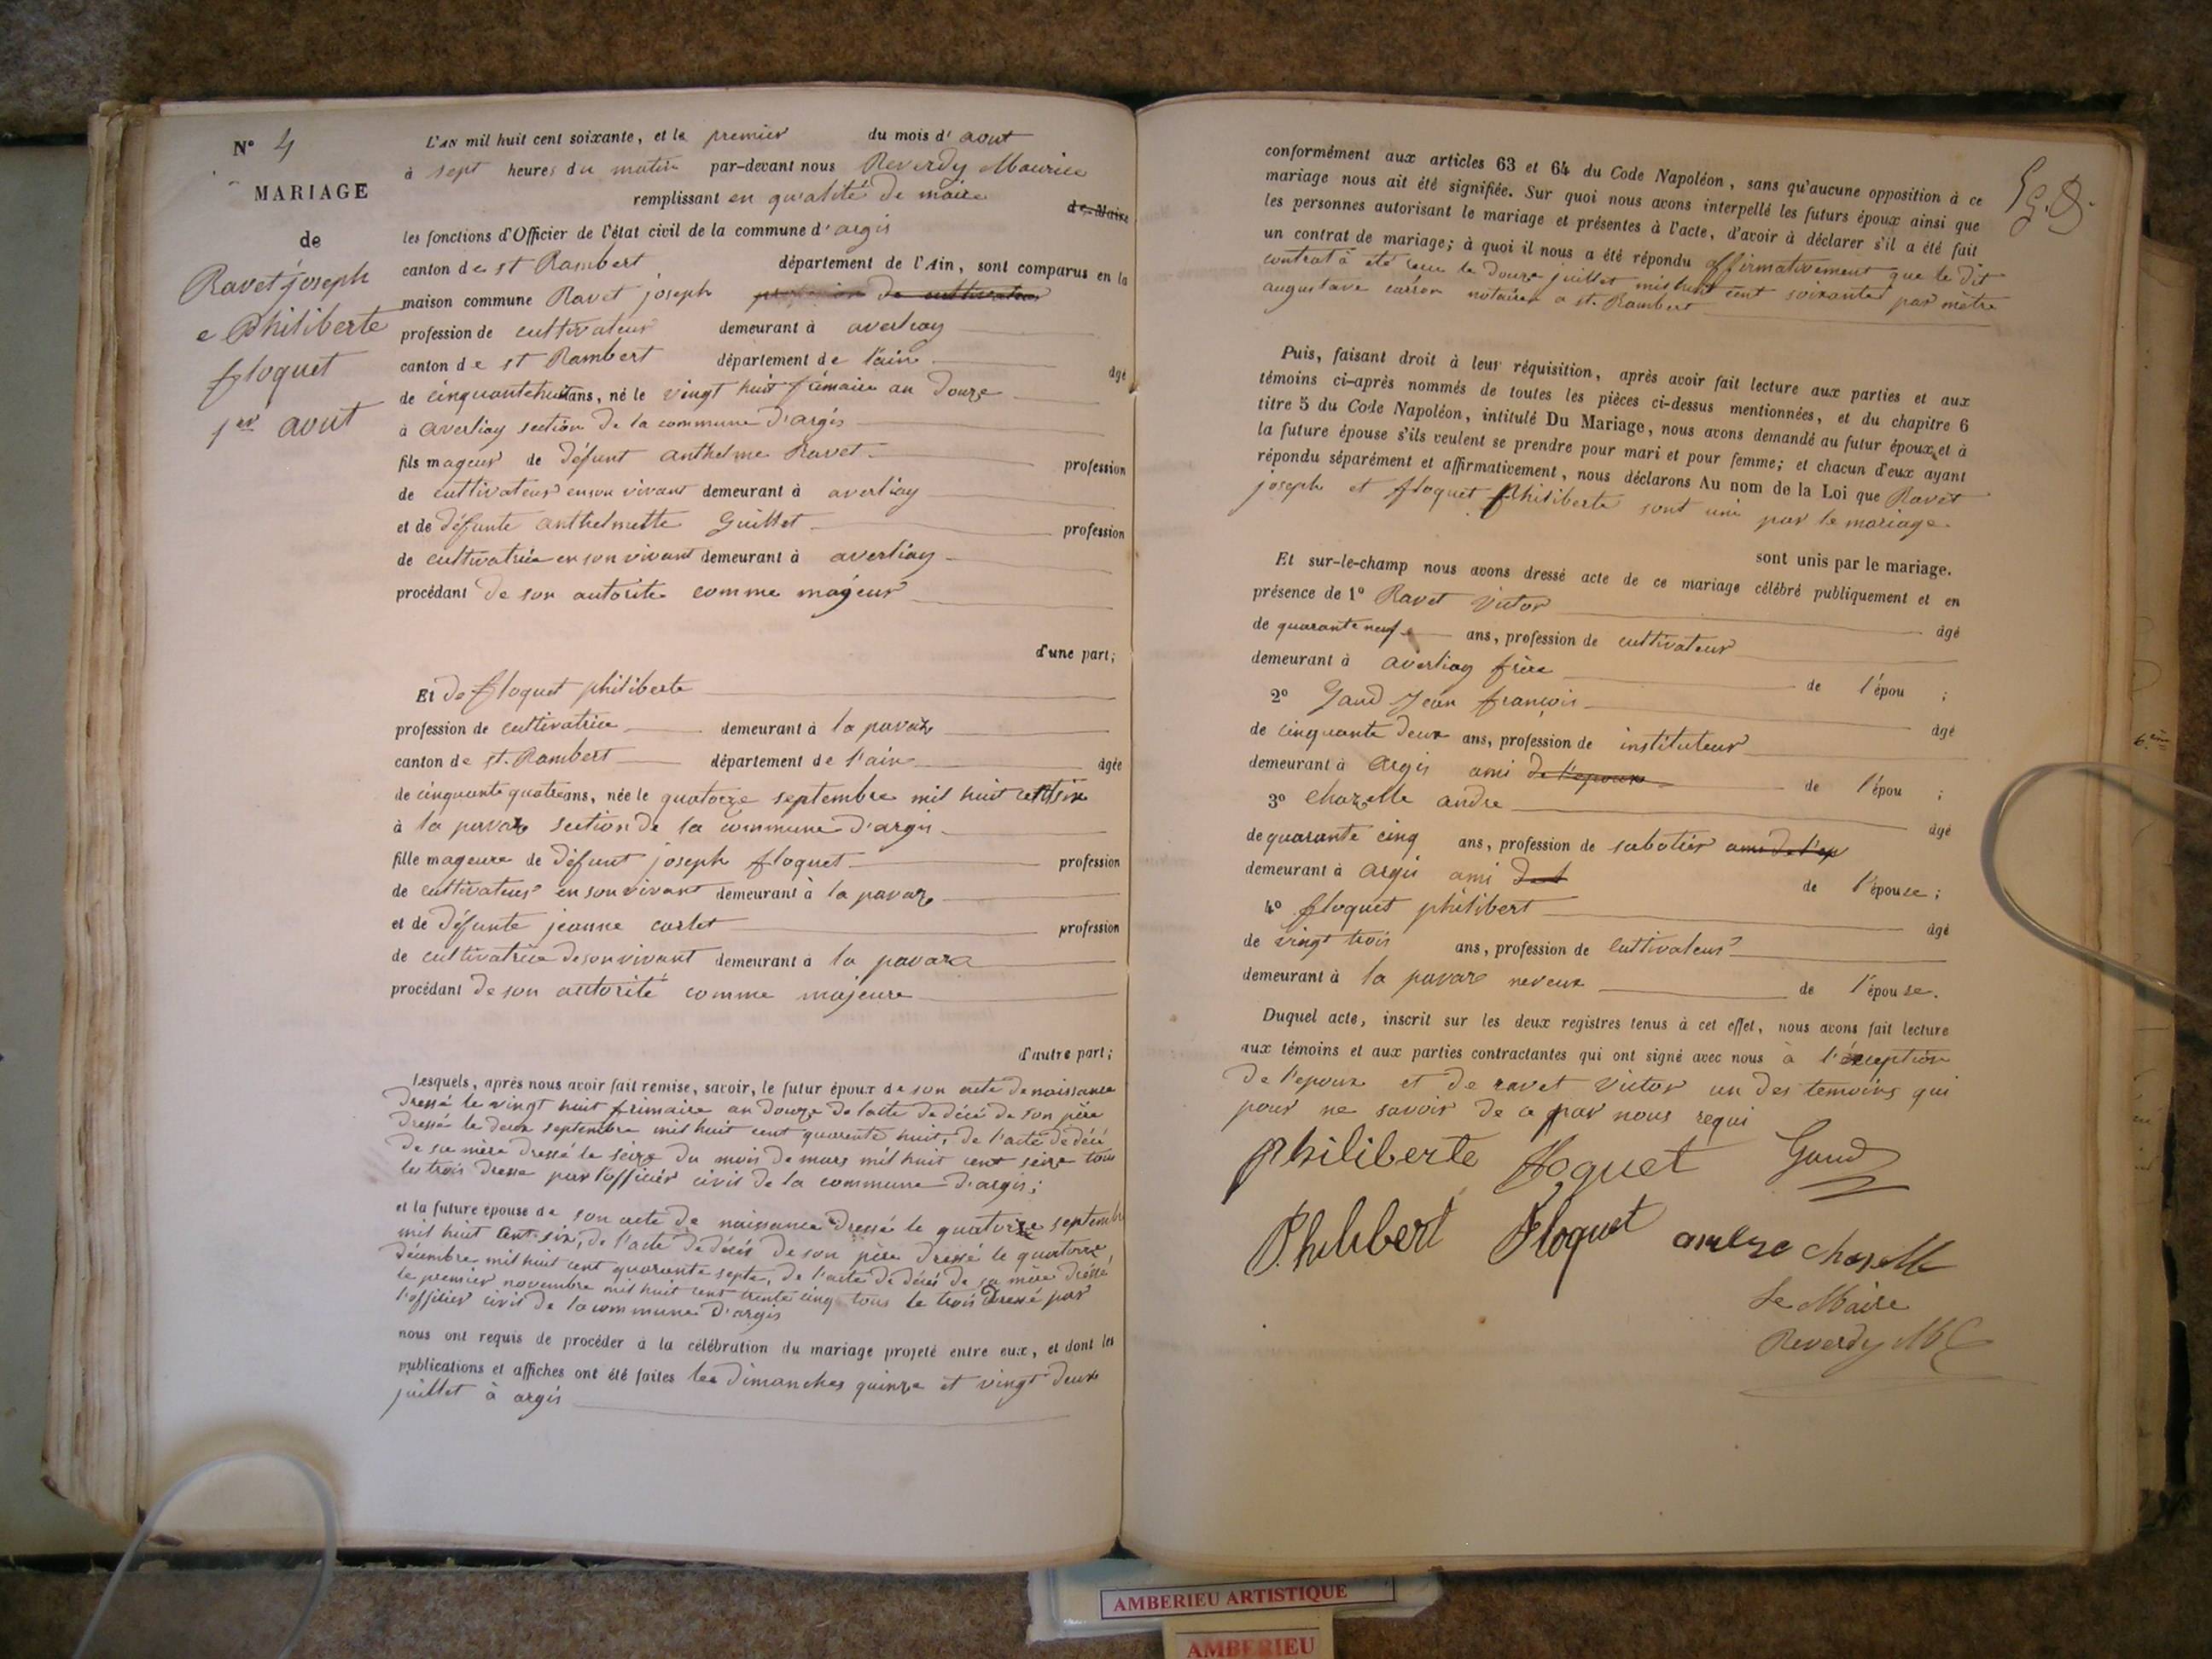 N° 4
MARIAGE
de
Ravet joseph
e Philiberte
floquet
1er aout
L'AN mil huit cent soixante, et le premier du mois d' aout
à sept heures du matin par-devant nous Reverdy Maurice
remplissant en qualité de maire de Maire
les fonctions d'Officier de l'état civil de la commune d'argis
canton de st Rambert département de l'Ain, sont comparus en la
maison commune Ravet joseph profession de cultivateur
profession de cultivateur demeurant à averliay
canton de st Rambert département de l'ain âgé
de cinquantehuit ans, né le vingt huit frimaire an douze
à averliay section de la commune d'argis
fils mageur de défunt anthelme Ravet profession
de cultivateur en son vivant demeurant à averliay
et de défunte anthelmette Guillet profession
de cultivatrice en son vivant demeurant à averliay
procédant de son autorité comme mageur
d'une part;
Et de floquet philiberte
profession de cultivatrice demeurant à la pavaz
canton de st. Rambert département de l'ain âgée
de cinquante quatre ans, née le quatorze septembre mil huit cent six
à la pavaz section de la commune d'argis
fille mageure de défunt joseph floquet profession
de cultivateur en son vivant demeurant à la pavaz
et de défunte jeanne carlet profession
de cultivatrice de son vivant demeurant à la pavaz
procédant de son autorité comme majeure
d'autre part;
Lesquels, après nous avoir fait remise, savoir, le futur époux de son acte de naissance
dressé le vingt huit frimaire an douze de lacte de décé de son père
dressé le deux septembre mil huit cent quarente huit, de l'acte de décé
de sa mère dressé le seize du mois de mars mil huit cent seize tous
les trois dresse par l'officier civil de la commune d'argis;
et la future épouse de son acte de naissance dressé le quatorze septembre
mil huit cent six, de l'acte de décés de son père dressé le quatorze
décembre mil huit cent quarante septe, de l'acte de décés de sa mère dréssé
le premier novembre mil huit cent trente cinq tous le trois dressé par
l'officier civil de la commune d'argis
nous ont requis de procéder à la célébration du mariage projeté entre eux, et dont les
publications et affiches ont été faites les dimanches quinze et vingt deux
juillet à argis
conformément aux articles 63 et 64 du Code Napoléon, sans qu'aucune opposition à ce
mariage nous ait été signifiée. Sur quoi nous avons interpellé les futurs époux ainsi que
les personnes autorisant le mariage et présentes à l'acte, d'avoir à déclarer s'il a été fait
un contrat de mariage; à quoi il nous a été répondu affirmativement que le dit
contrat à été reçu le douze juillet mil huit cent soixante par mètre
augustave notaire a st. Rambert
Puis, faisant droit à leur réquisition, après avoir fait lecture aux parties et aux
témoins ci-après nommés de toutes les pièces ci-dessus mentionnées, et du chapitre 6
titre 5 du Code Napoléon, intitulé Du Mariage, nous avons demandé au futur époux et à
la future épouse s'ils veulent se prendre pour mari et pour femme; et chacun d'eux ayant
répondu séparément et affirmativement, nous déclarons Au nom de la Loi que Ravet
joseph et floquet philiberte sont uni par le mariage
sont unis par le mariage.
Et sur-le-champ nous avons dressé acte de ce mariage célébré publiquement et en
présence de 1° Ravet Victor âgé
de quarante neuf ans, profession de cultivateur
demeurant à averliay frère de l'épou ;
2° Gaud Jean françois âgé
de cinquante deux ans, profession de instituteur
demeurant à Argis ami de l'epoux de l'épou ;
3° chazelle andre âgé
de quarante cinq ans, profession de sabotier ami de l'ep
demeurant à argis ami de l de l'épouse ;
4° floquet philibert âgé
de vingt trois ans, profession de cultivateur
demeurant à la pavaz neveux de l'épouse.
Duquel acte, inscrit sur les deux registres tenus à cet effet, nous avons fait lecture
aux témoins et aux parties contractantes qui ont signé avec nous à l'éxception
de l'epoux et de ravet Victor un des temoins qui
pour ne savoir de ce par nous requi
Philiberte floquet Gaud
Philibert Floquet andre chazelle
Le Maire
Reverdy M
AMBERIEU ARTISTIQUE
AMBERIEU